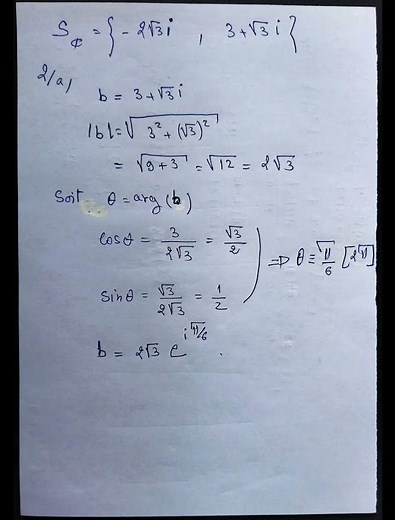 S_ℂ = { -2√3i , 3+√3 i }
2/a,
b = 3+√3 i
|b| = √(3² + (√3)²)
= √(9+3) = √12 = 2√3
Soit θ = arg(b)
cosθ = 3/(2√3) = √3/2
⇒ θ ≡ π/6 [2π]
sinθ = √3/(2√3) = 1/2
b = 2√3 e^(iπ/6) .